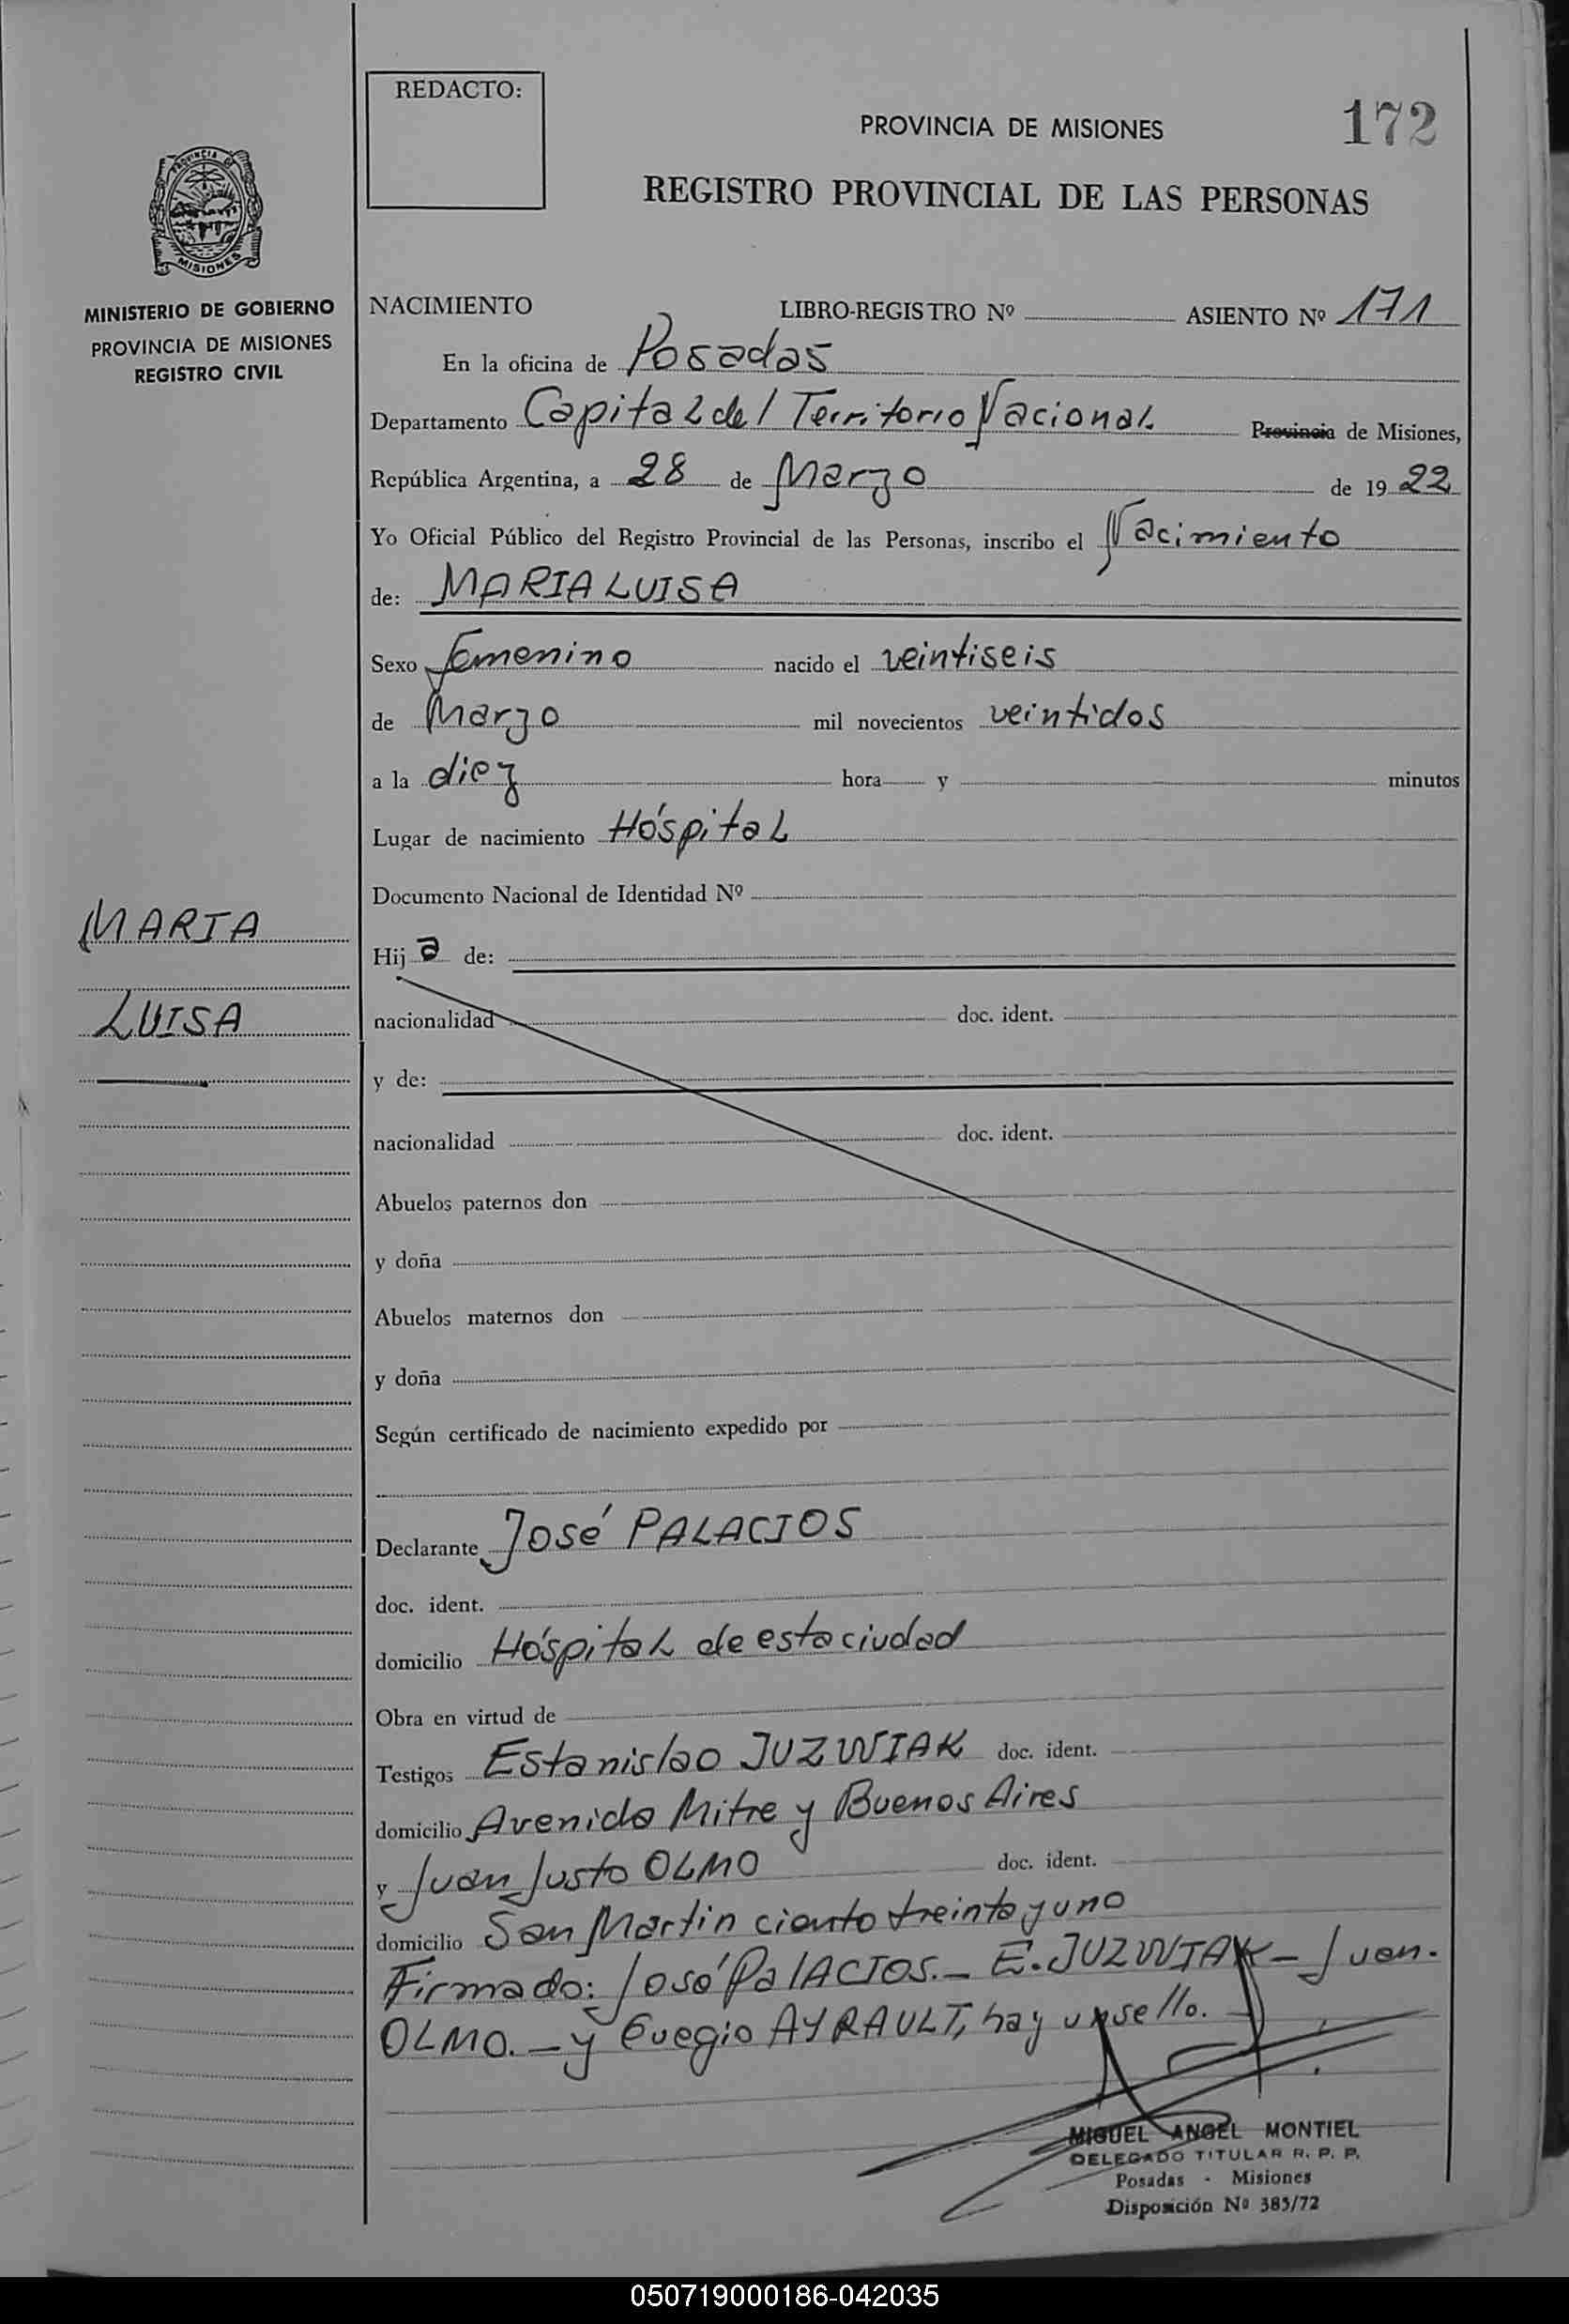 REDACTO:
PROVINCIA DE MISIONES
172
REGISTRO PROVINCIAL DE LAS PERSONAS
PROVINCIA DE
MISIONES
MINISTERIO DE GOBIERNO
PROVINCIA DE MISIONES
REGISTRO CIVIL
NACIMIENTO LIBRO-REGISTRO Nº ASIENTO Nº 171
En la oficina de Posadas
Departamento Capital del Territorio Nacional. Provincia de Misiones,
República Argentina, a 28 de Marzo de 1922
Yo Oficial Público del Registro Provincial de las Personas, inscribo el Nacimiento
de: MARIA LUISA
Sexo femenino nacido el veintiseis
de Marzo mil novecientos veintidos
a la diez hora y minutos
Lugar de nacimiento Hóspital
Documento Nacional de Identidad Nº
MARIA
LUISA
Hija de:
nacionalidad doc. ident.
y de:
nacionalidad doc. ident.
Abuelos paternos don
y doña
Abuelos maternos don
y doña
Según certificado de nacimiento expedido por
Declarante José PALACIOS
doc. ident.
domicilio Hóspital de esta ciudad
Obra en virtud de
Testigos Estanislao JUZWIAK doc. ident.
domicilio Avenida Mitre y Buenos Aires
y Juan Justo OLMO doc. ident.
domicilio San Martin ciento treinta y uno
Firmado: José PalACIOS.- E. JUZWIAK- Juan.
OLMO.- y Euegio AYRAULT, hay un sello.
MIGUEL ANGEL MONTIEL
DELEGADO TITULAR R. P. P.
Posadas - Misiones
Disposición Nº 385/72
050719000186-042035